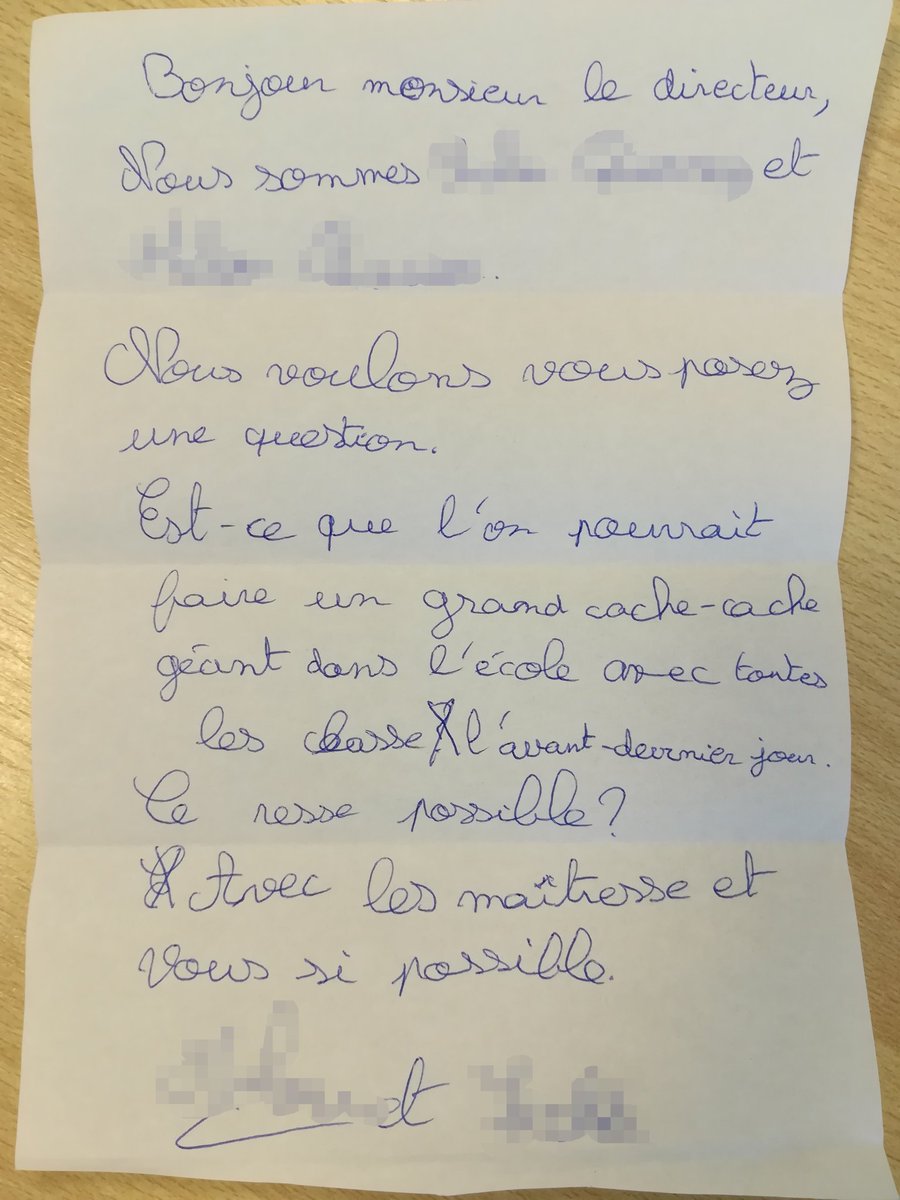 Bonjour monsieur le directeur,
Nous sommes et
Nous voulons vous posez
une question.
Est-ce que l'on pourrait
faire un grand cache-cache
géant dans l'école avec toutes
les classe l'avant-dernier jour.
Ce resse possible?
Avec les maîtresse et
vous si possible.
et